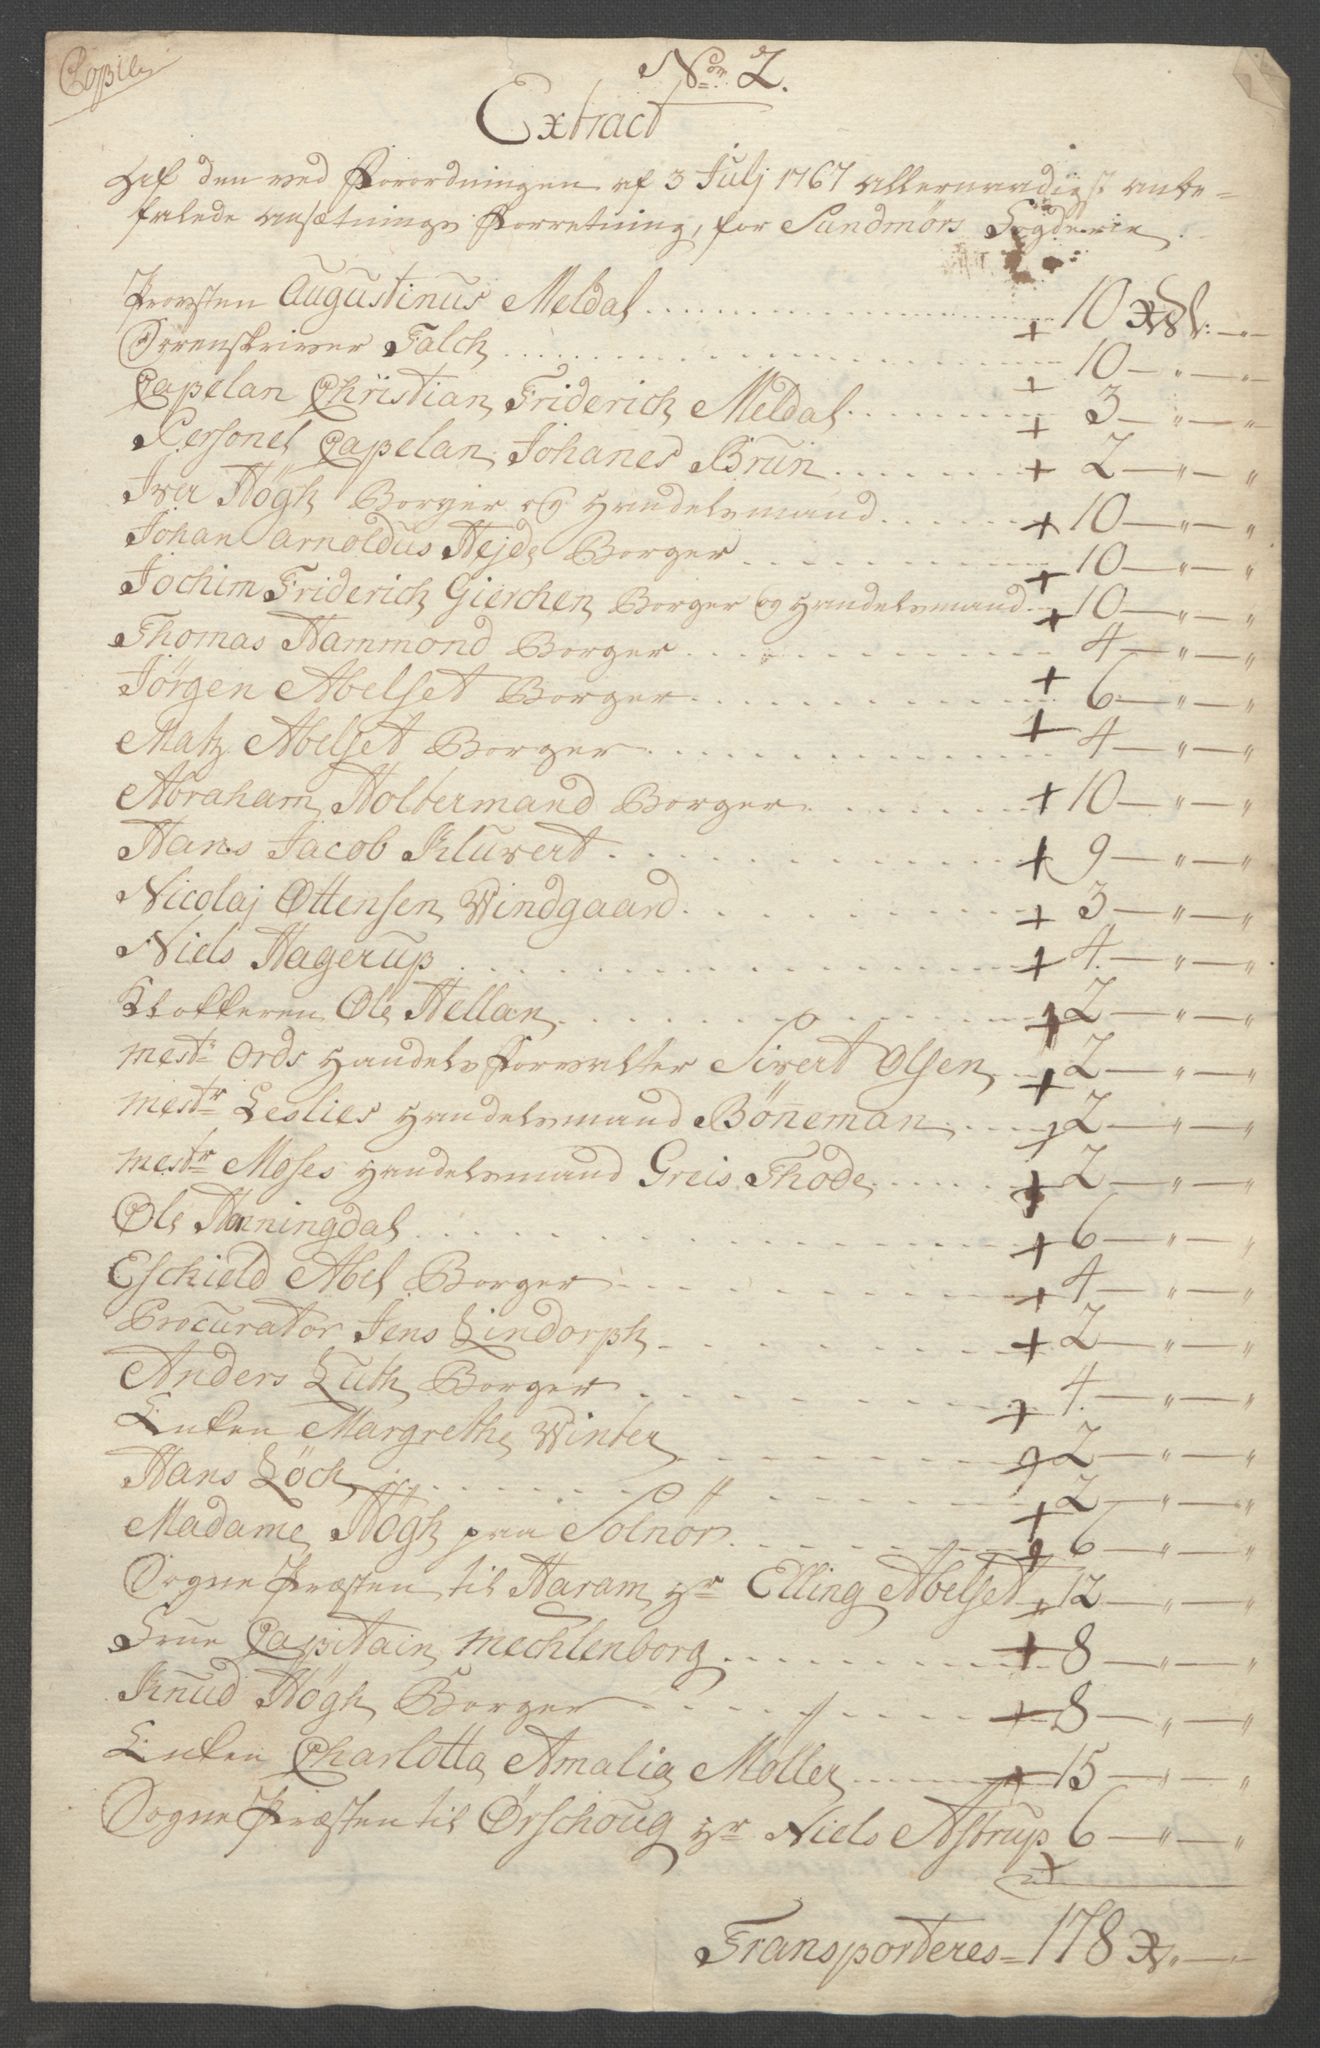 Copie
No 2.
Extract
Af den ved Forordningen af 3 Julj 1767 allernaadigst anbe-
falede ansætnings Forretning, for Sundmørs Fogderie
Provsten Augustinus Meldal + 10 Rdl: —
Sorenskriver Falch + 10 — " — "
Capelan Christian Friderich Meldal + 3 — " — "
Personel Capelan Johanes Brun + 2 — " — "
Iver Høgh Borger og Handelsmand + 10 — " — "
Johan Arnoldus Hejde Borger + 10 — " — "
Jochim Friderich Gierchen Borger og Handelsmand + 10 — " — "
Thomas Hammond Borger 4 — " — "
Jørgen Abelset Borger + 6 — " — "
Matz Abelset Borger + 4 — " — "
Abraham Holtermand Borger + 10 — " — "
Hans Jacob Kluvert + 9 — " — "
Nicolaj Ottensen Windgaard + 3 — " — "
Niels Hagerup + 4 — " — "
Klokkeren Ole Hellan + 2 — " — "
mestr Ords Handels Forvalter Sivert Olsen + 2 — " — "
mestr Leslies Handelsmand Bönneman + 2 — " — "
mestr Moses Handelsmand Greis Thode + 2 — " — "
Ole Hanningdal + 6 — " — "
Eschield Abel Borger + 4 — " — "
Procurator Jens Lindorph + 2 — " — "
Anders Luth Borger + 4 — " — "
Enken Margrethe Winter + 2 — " — "
Hans Löch + 2 — " — "
Madame Høgh paa Solnør + 6 — " — "
Sogne Præsten til Haram Hr Elling Abelset + 12 — " — "
Frue Capitain Mechlenborg + 8 — " — "
Knud Høgh Borger + 8 — " — "
Enken Charlotta Amalia Møller + 15 — " — "
Sogne Præsten til Ørschoug Hr Niels Astrup + 6 — " — "
Transporteres = 178 Rd " —